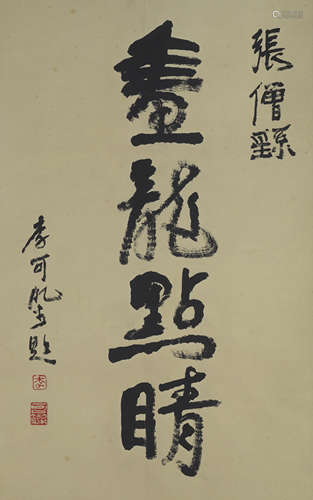 張僧繇
畫龍點睛
李可染題